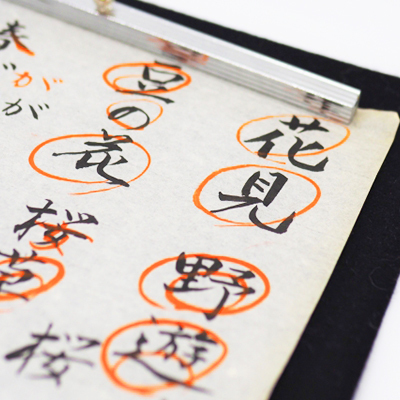 花見
野遊
豆の花
桜草
桜
がが